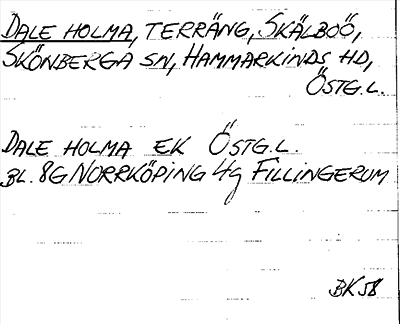 DALE HOLMA, TERRÄNG, SKÄLBOÖ,
SKÖNBERGA SN, HAMMARKINDS HD,
ÖSTG.L.
DALE HOLMA EK ÖSTG.L.
BL. 8G NORRKÖPING 4g FILLINGERUM
BK 58